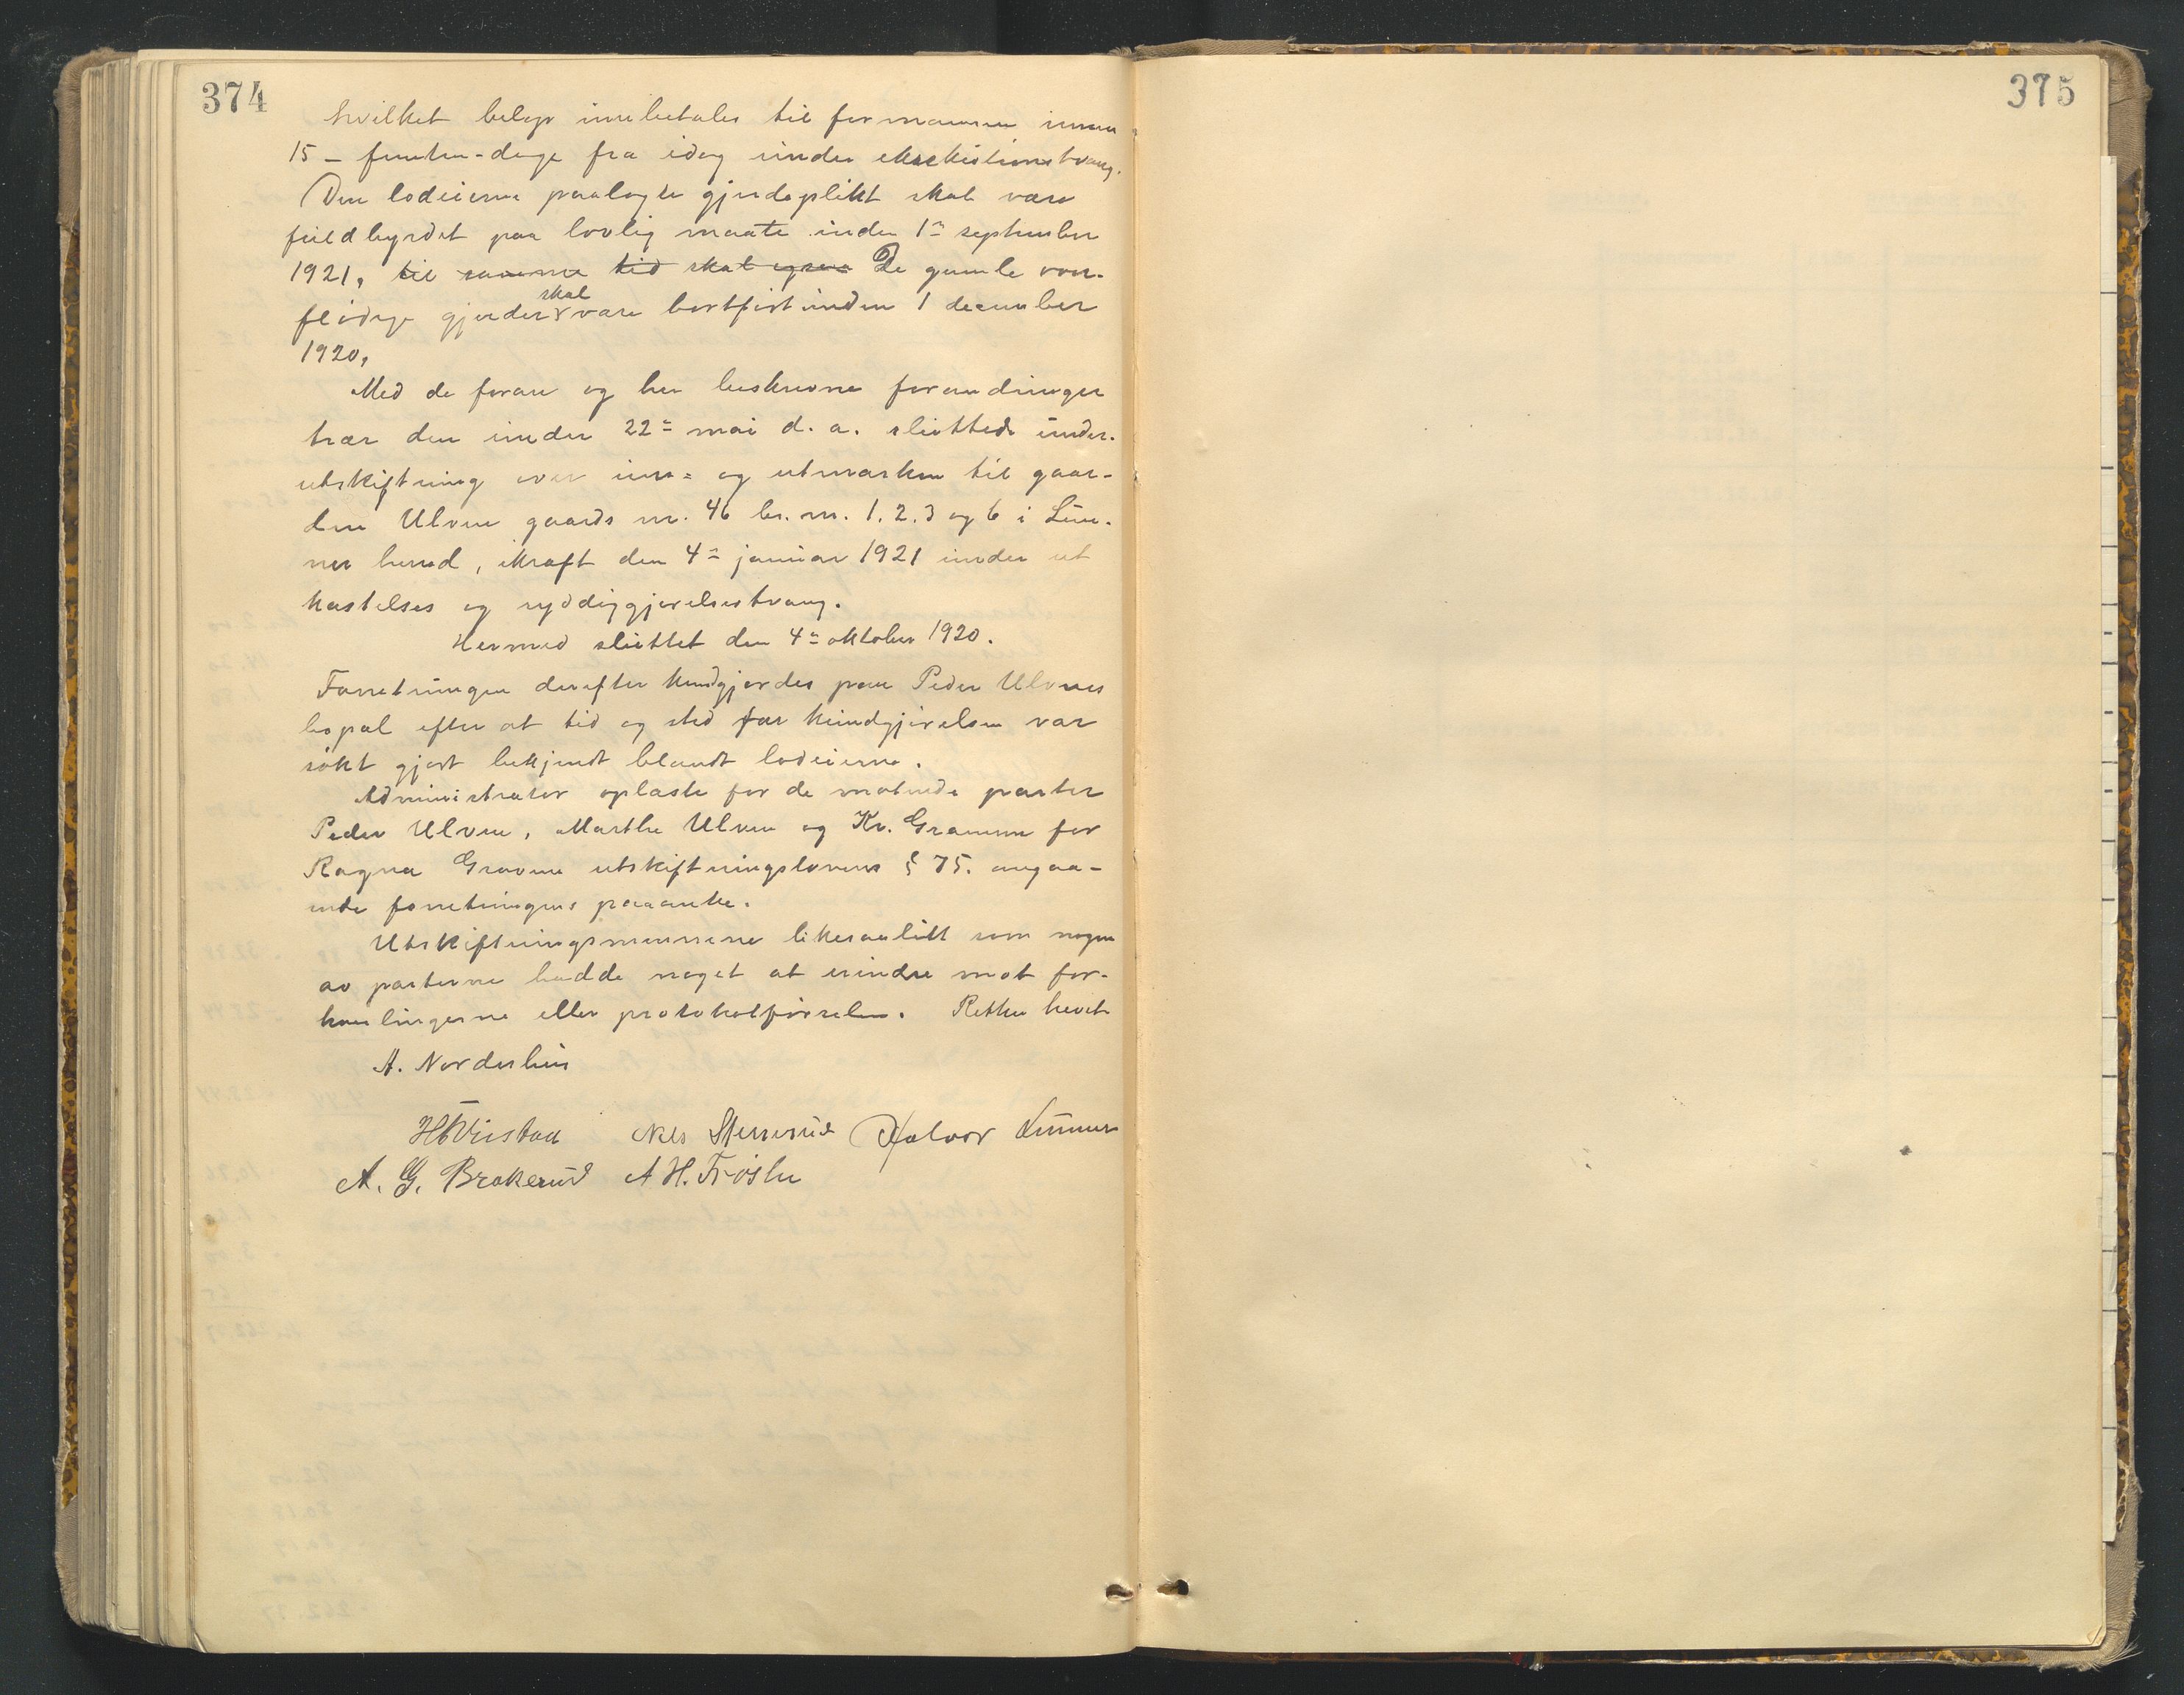 374
hvilket beløp innbetales til formannen innen
15 - femten - dage fra idag under eksekutionstvang.
Den lodeierne paalagte gjerdeplikt skal være
fuldbyrdet paa lovlig maate inden 1ste september
1921, til samme tid skal ogsaa De gamle over-
flødige gjerder skal være bortført inden 1 december
1920,
Med de foran og her beskrevne forandringer
trær den under 22de mai d. a. sluttede under-
utskiftning over inn= og utmarken til gaar-
den Ulven gaards nr. 46 br. nr. 1. 2. 3 og 6 i Lun-
ner herred, ikraft den 4de januar 1921 under ut
kastelses og ryddiggjørelsestvang.
Hermed sluttet den 4de oktober 1920.
Forretningen derefter kundgjordes paa Peder Ulvens
bopæl efter at tid og sted for kundgjørelsen var
søkt gjort bekjendt blandt lodeierne.
Administrator oplæste for de møtende parter
Peder Ulven, Marthe Ulven og Kr. Gramm for
Ragna Gravne utskiftningslovens § 75. angaa-
ende forretningens paaanke.
Utskiftningsmennene likesaalitt som nogen
av parterne hadde noget at erindre mot for-
handlingerne eller protokolførselen. Retten hævet
A. Norderhus
H Vinstad Nils Stenerud Halvor Lunner
A. G. Brakerud A H. Frøslie
375